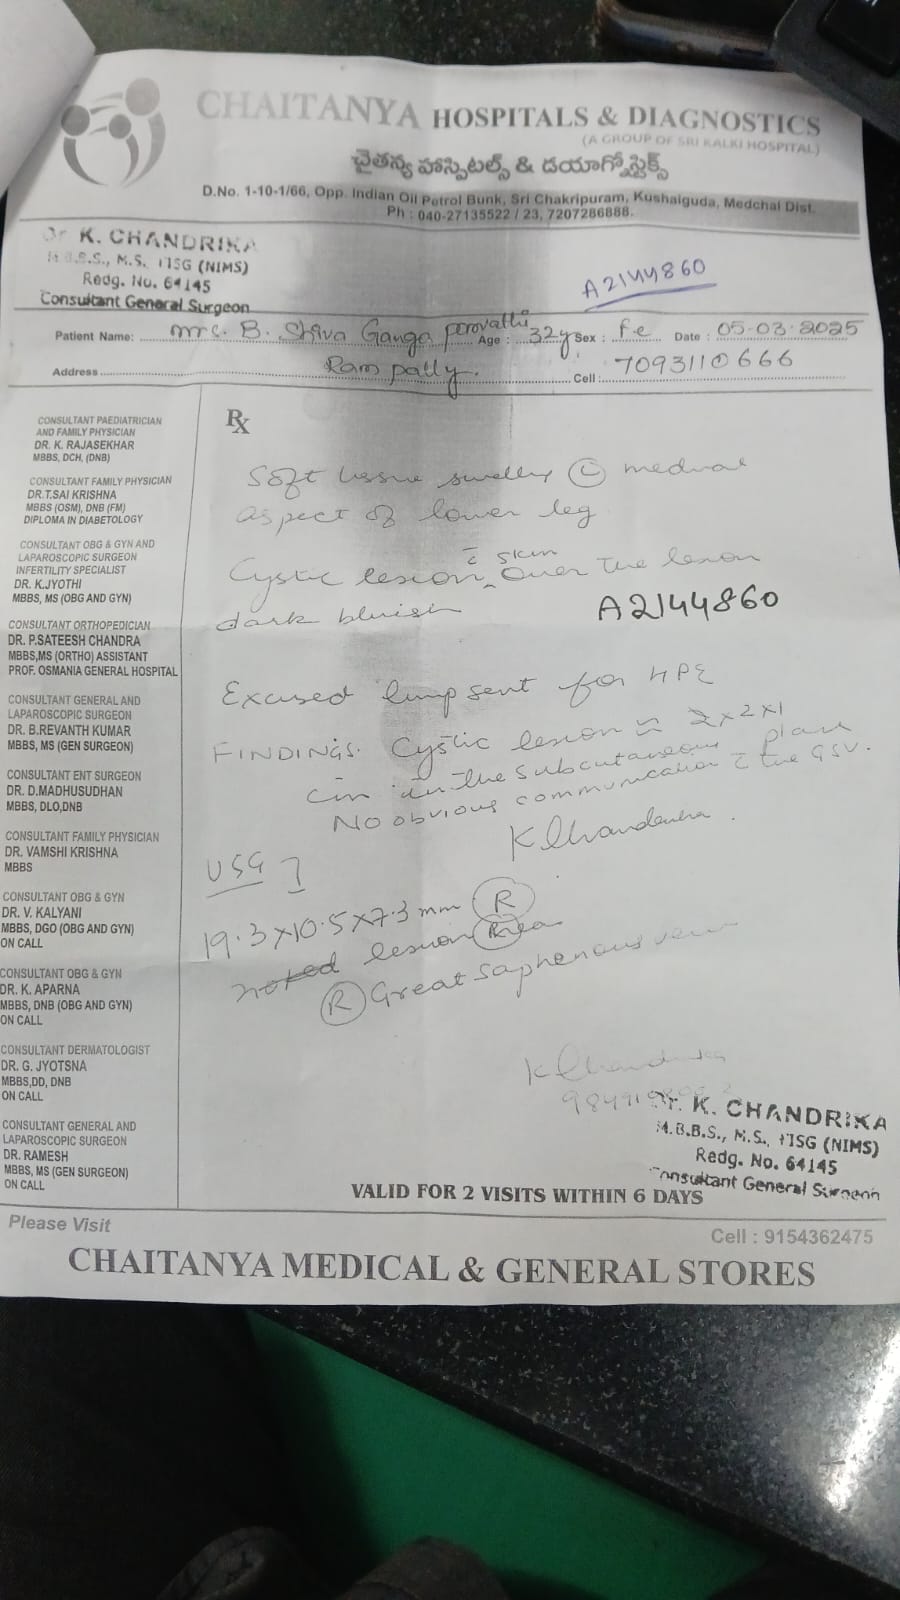 CHAITANYA HOSPITALS & DIAGNOSTICS
(A GROUP OF SRI KALKI HOSPITAL)
చైతన్య హాస్పిటల్స్ & డయాగ్నోస్టిక్స్
D.No. 1-10-1/66, Opp. Indian Oil Petrol Bunk, Sri Chakripuram, Kushaiguda, Medchal Dist.
Ph : 040-27135522 / 23, 7207286888.
Dr K. CHANDRIKA
M.B.B.S., M.S. (NIMS)
Redg. No. 64145
Consultant General Surgeon
A2144860
Patient Name: B. Shiva Ganga parvathi Age : 32y Sex : Fe Date : 05-03-2025
Address Rampally. Cell : 7093110666
CONSULTANT PAEDIATRICIAN
AND FAMILY PHYSICIAN
DR. K. RAJASEKHAR
MBBS, DCH, (DNB)
CONSULTANT FAMILY PHYSICIAN
DR.T.SAI KRISHNA
MBBS (OSM), DNB (FM)
DIPLOMA IN DIABETOLOGY
CONSULTANT OBG & GYN AND
LAPAROSCOPIC SURGEON
INFERTILITY SPECIALIST
DR. K.JYOTHI
MBBS, MS (OBG AND GYN)
CONSULTANT ORTHOPEDICIAN
DR. P.SATEESH CHANDRA
MBBS,MS (ORTHO) ASSISTANT
PROF. OSMANIA GENERAL HOSPITAL
CONSULTANT GENERAL AND
LAPAROSCOPIC SURGEON
DR. B.REVANTH KUMAR
MBBS, MS (GEN SURGEON)
CONSULTANT ENT SURGEON
DR. D.MADHUSUDHAN
MBBS, DLO,DNB
CONSULTANT FAMILY PHYSICIAN
DR. VAMSHI KRISHNA
MBBS
CONSULTANT OBG & GYN
DR. V. KALYANI
MBBS, DGO (OBG AND GYN)
ON CALL
CONSULTANT OBG & GYN
DR. K. APARNA
MBBS, DNB (OBG AND GYN)
ON CALL
CONSULTANT DERMATOLOGIST
DR. G. JYOTSNA
MBBS,DD, DNB
ON CALL
CONSULTANT GENERAL AND
LAPAROSCOPIC SURGEON
DR. RAMESH
MBBS, MS (GEN SURGEON)
ON CALL
Rx
Soft tissue swelling medial
aspect of lower leg
Cystic lesion c̄ skin over the lesion
dark bluish
A2144860
Excised lump sent for HPE
FINDINGS. Cystic lesion 2x2x1
cm in the subcutaneous plane
No obvious communication c̄ the GSV.
K Chandrika
USG
19.3x10.5x7.3 mm (R)
noted lesion
(R) Great saphenous vein
K Chandrika
Dr. K. CHANDRIKA
M.B.B.S., M.S. (NIMS)
Redg. No. 64145
Consultant General Surgeon
VALID FOR 2 VISITS WITHIN 6 DAYS
Please Visit
Cell : 9154362475
CHAITANYA MEDICAL & GENERAL STORES